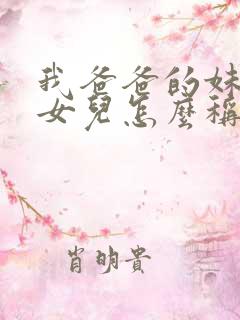 我爸爸的妹
女兒怎麼稱
肖明貴